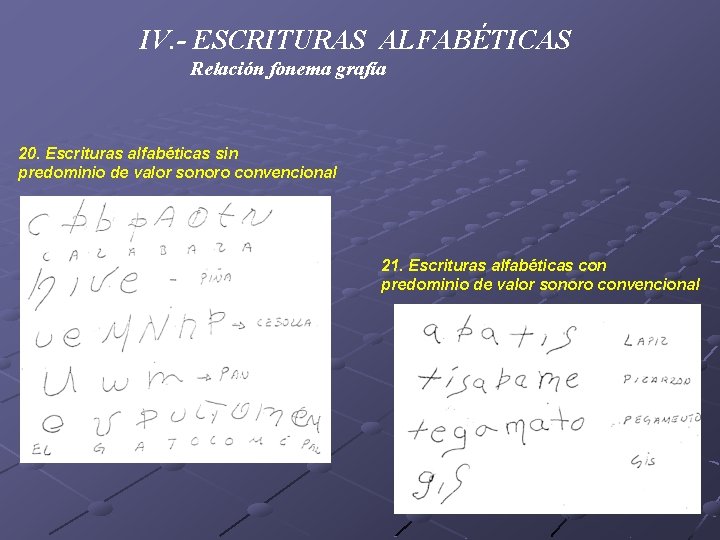 IV.- ESCRITURAS ALFABÉTICAS
Relación fonema grafía
20. Escrituras alfabéticas sin
predominio de valor sonoro convencional
c p b p A o t r
C A L A B A Z A
hive - PIÑA
ue MNhP → CEBOLLA
U w m → PAN
EL G A T O C O M E PAN
21. Escrituras alfabéticas con
predominio de valor sonoro convencional
apatis LAPIZ
tisabame PIZARRON
tegamato PEGAMENTO
gis GIS